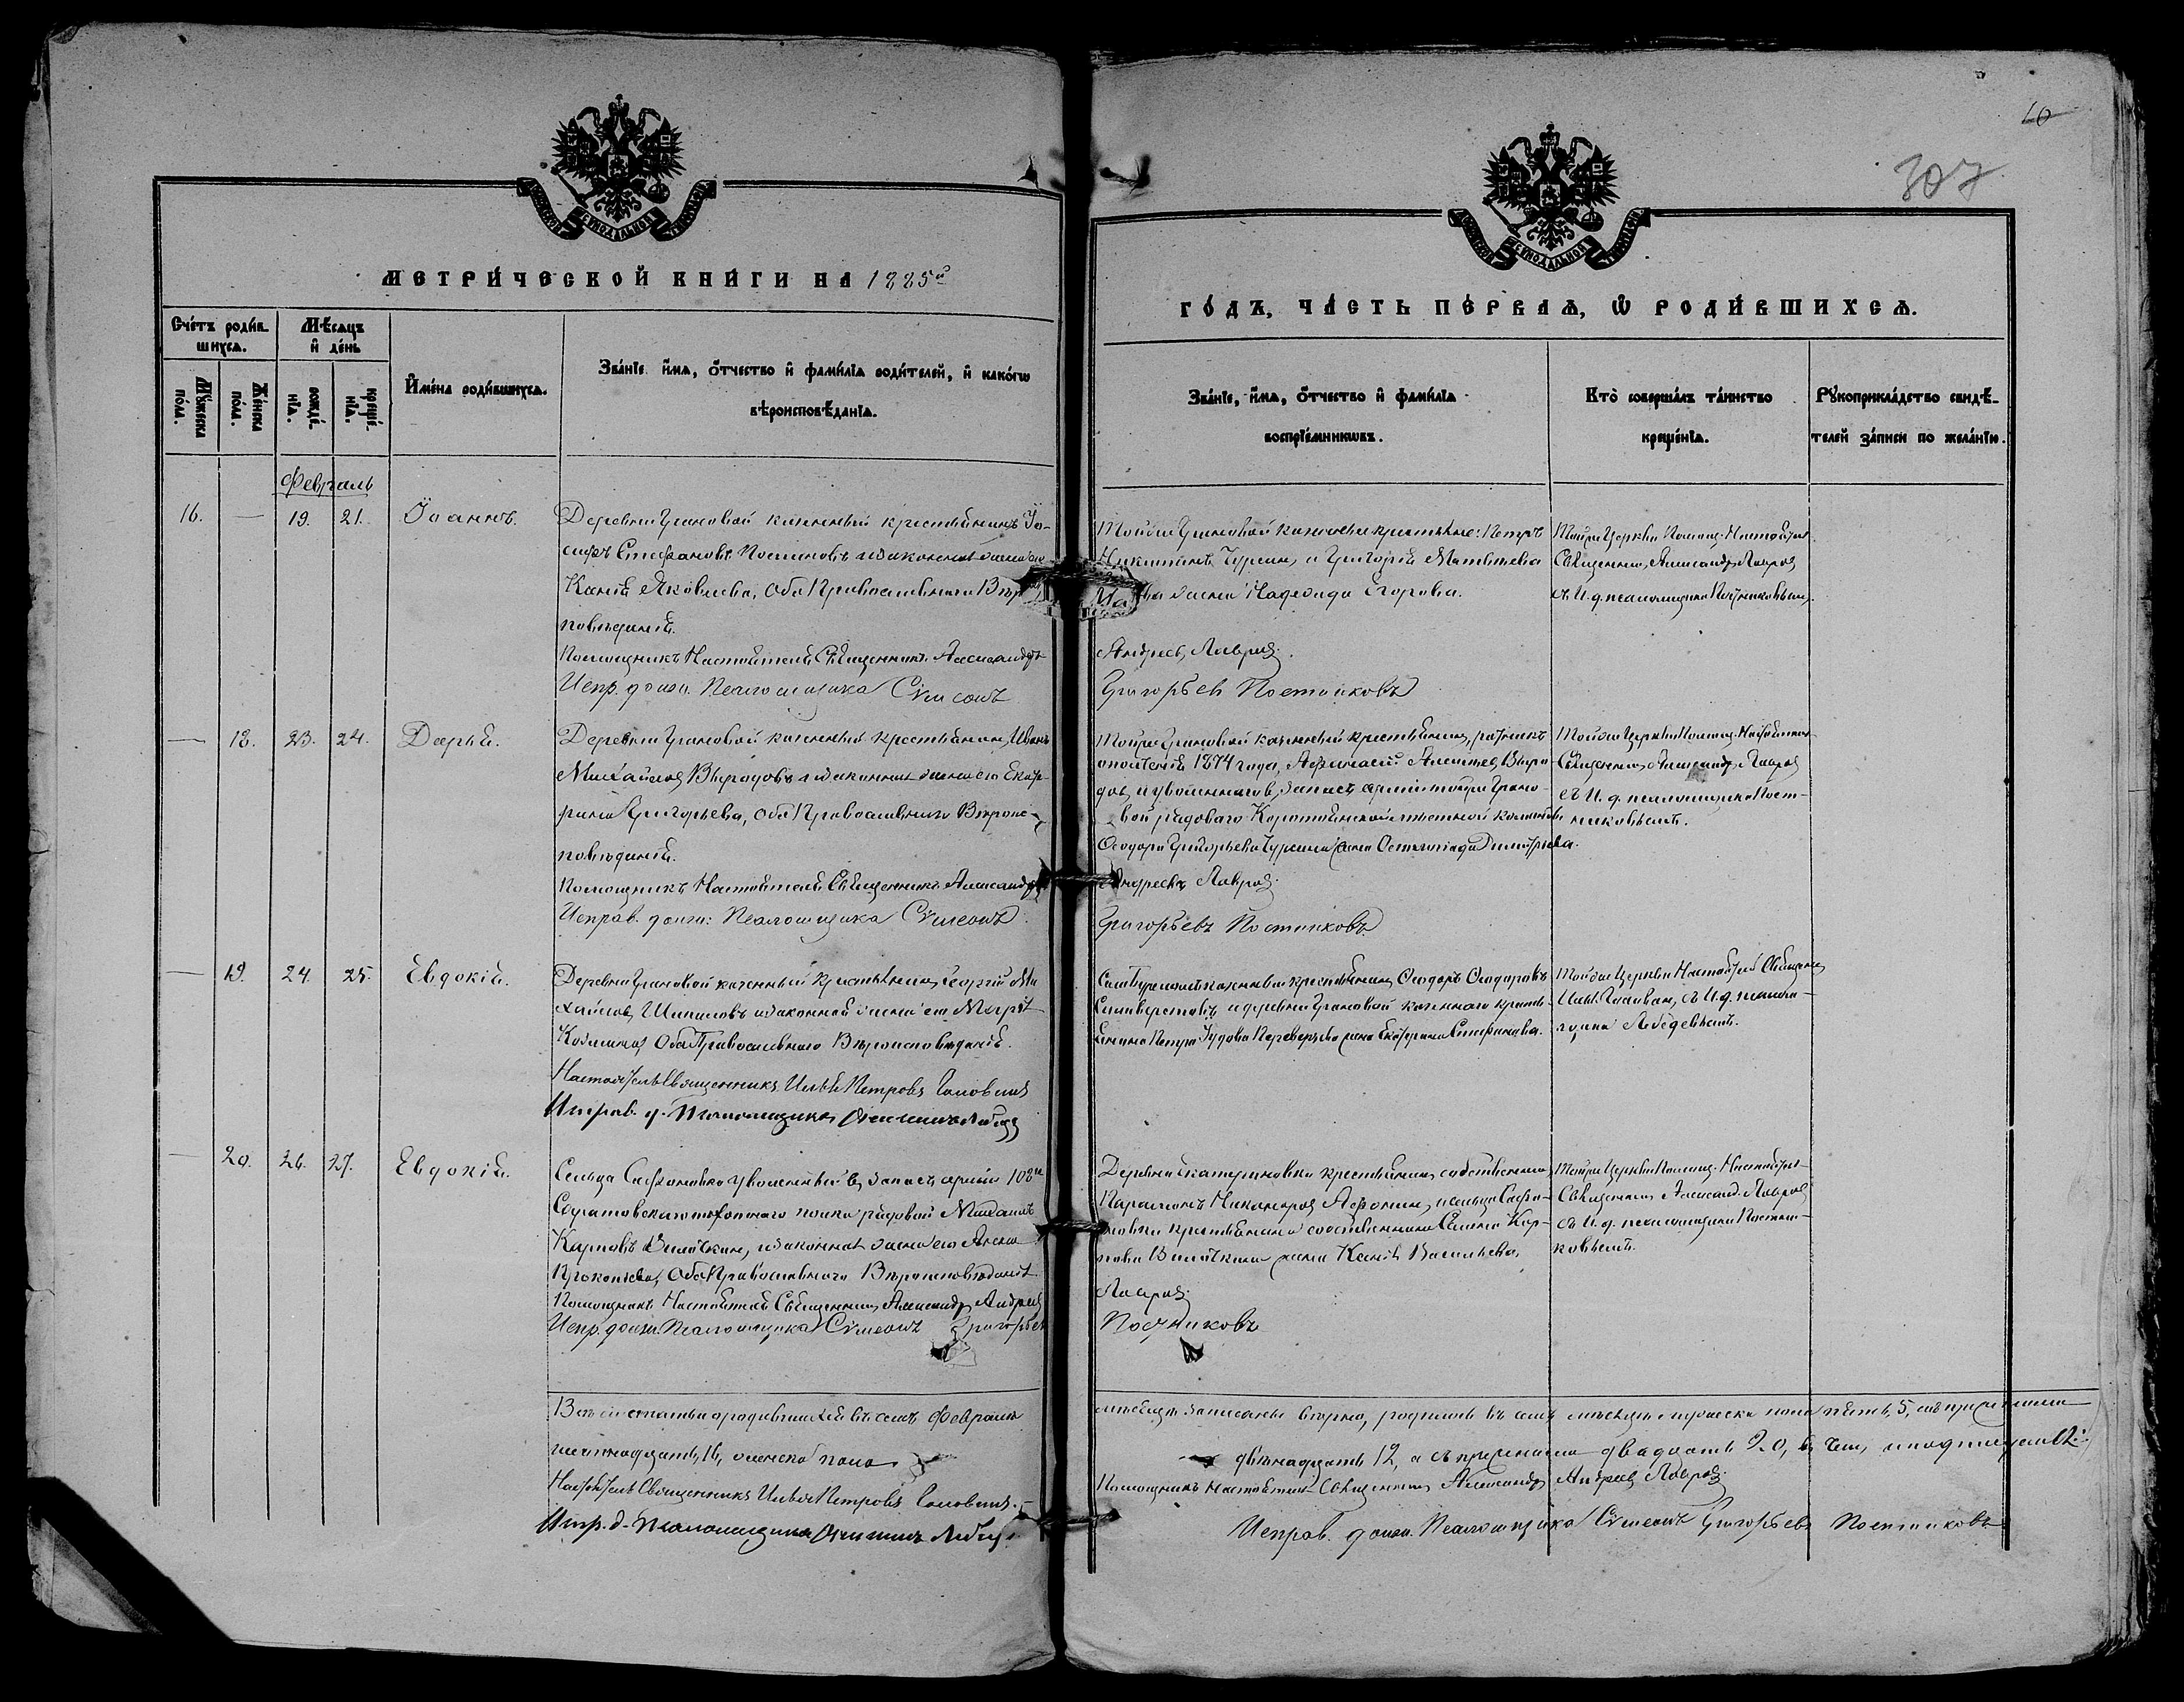 10
307
МЕТРИ́ЧЕСКОЙ КНИ́ГИ НА 1885й
ГО́ДЪ, ЧА́СТЬ ПЕ́РВАѦ, Ѿ РОДИ́ВШИХСѦ.
Сче́тъ роди́в-
шихсѧ.
Мѣ́сѧцъ
и҆ де́нь
Мꙋ́жеска по́ла.
Же́нска по́ла.
рожде́-
нїѧ.
креще́-
нїѧ.
И҆мена̀ роди́вшихсѧ.
Зва́нїе, и҆́мѧ, ѻ҆́тчество и҆ фами́лїѧ роди́телей, и҆ како́гѡ
вѣроисповѣ́данїѧ.
Зва́нїе, и҆́мѧ, ѻ҆́тчество и҆ фами́лїѧ
воспрїе́мникѡвъ.
Кто̀ соверша́лъ та́инство
креще́нїѧ.
Рꙋкоприкла́дство свидѣ́-
телей за́писи по жела́нїю.
Февраль
16. — 19. 21. Іоаннъ.
Деревни Грановой казенный крестьянинъ Іо-
сифъ Стефановъ Постновъ и законная жена его
Ксенія Яковлева, оба Православнаго Вѣро
повѣданія.
Помощникъ Настоятеля Священникъ Александръ
Испр. долж. Псаломщика Сѵмеонъ
Той же Грановой казенные крестьяне: Петръ
Никитинъ Чуркин и Григорія Матвѣева
жена Надежда Егорова.
Андреев Лавров.
Григорьев Постниковъ
Той же Церкви Помощ. Настоятеля
Священник Александр Лавров
съ И. д. псаломщика Постниковым.
— 18. 23. 24. Дарья.
Деревни Грановой казенный крестьянин Иванъ
Михайлов Выродовъ и законная жена его Екате-
рина Григорьева, оба Православнаго Вѣроис-
повѣданія.
Помощникъ Настоятеля Священникъ Александръ
Исправ. долж: Псаломщика Сѵмеонъ
Той же Грановой казенный крестьянин, ратникъ
ополченія 1874 года, Афанасій Алексѣев Выро
дов, и уволеннаго в запасъ арміи той же Грано-
вой рядоваго мѣстной команды
Ѳеодора Григорьева Чуркина жена Димитріева.
Андреевъ Лавров.
Григорьевъ Постниковъ
Той же Церкви Помощ. Настоятеля
Священник Александр Лавров
съ И. д. псаломщика Пост-
никовымъ.
— 19. 24. 25. Евдокія.
Деревни Грановой казенный крестьянин Георгій Ми
хайлов Шипиловъ и законная жена его Марѳа
Козьмина, оба Православнаго Вѣроисповѣданія.
Настоятель Священникъ Илья Петровъ
Исправ. д. Псаломщика
казенный крестьянин Ѳеодоръ Ѳеодоровъ
Селиверстовъ и деревни Грановой казеннаго кресть-
янина Петра жена Екатерина Стефанова.
Той же Церкви Настоятель Священник
съ И. д. псалом-
щика Лебедевымъ.
— 20. 26. 27. Евдокія.
Сельца Сафоновки уволенный въ запасъ арміи 108го
Саратовскаго пѣхотнаго полка рядовой
Карповъ и законная жена его Анна
Прокопьева, оба Православнаго Вѣроисповѣданія.
Помощникъ Настоятеля Священник Александр Андреев
Испр. долж. Псаломщика Сѵмеонъ Григорьев
Деревни Екатериновки крестьянин собственник
Парамонъ Никаноров Афонин, и сельца Сафо-
новки крестьянина собственника Кар-
пова жена Ксенія Васильева.
Лавров.
Постниковъ
Той же Церкви Помощ. Настоятеля
Священник Александ. Лавров
съ И. д. псаломщика Постни-
ковымъ.
Всѣ сіи статьи о родившихся въ семъ Февралѣ
мѣсяцѣ записаны вѣрно, родилось въ семъ мѣсяцѣ мужеска пола пять, 5, съ прежними
шестнадцать, 16, женска пола
двѣнадцать 12, а съ прежними двадцать 20, въ чем и подписуемся:
Настоятель Священникъ Илья Петровъ
Помощникъ Настоятеля Священник Александр Андреев Лавров.
Испр. д. Псаломщика
Исправ. долж. Псаломщика Сѵмеонъ Григорьевъ Постниковъ